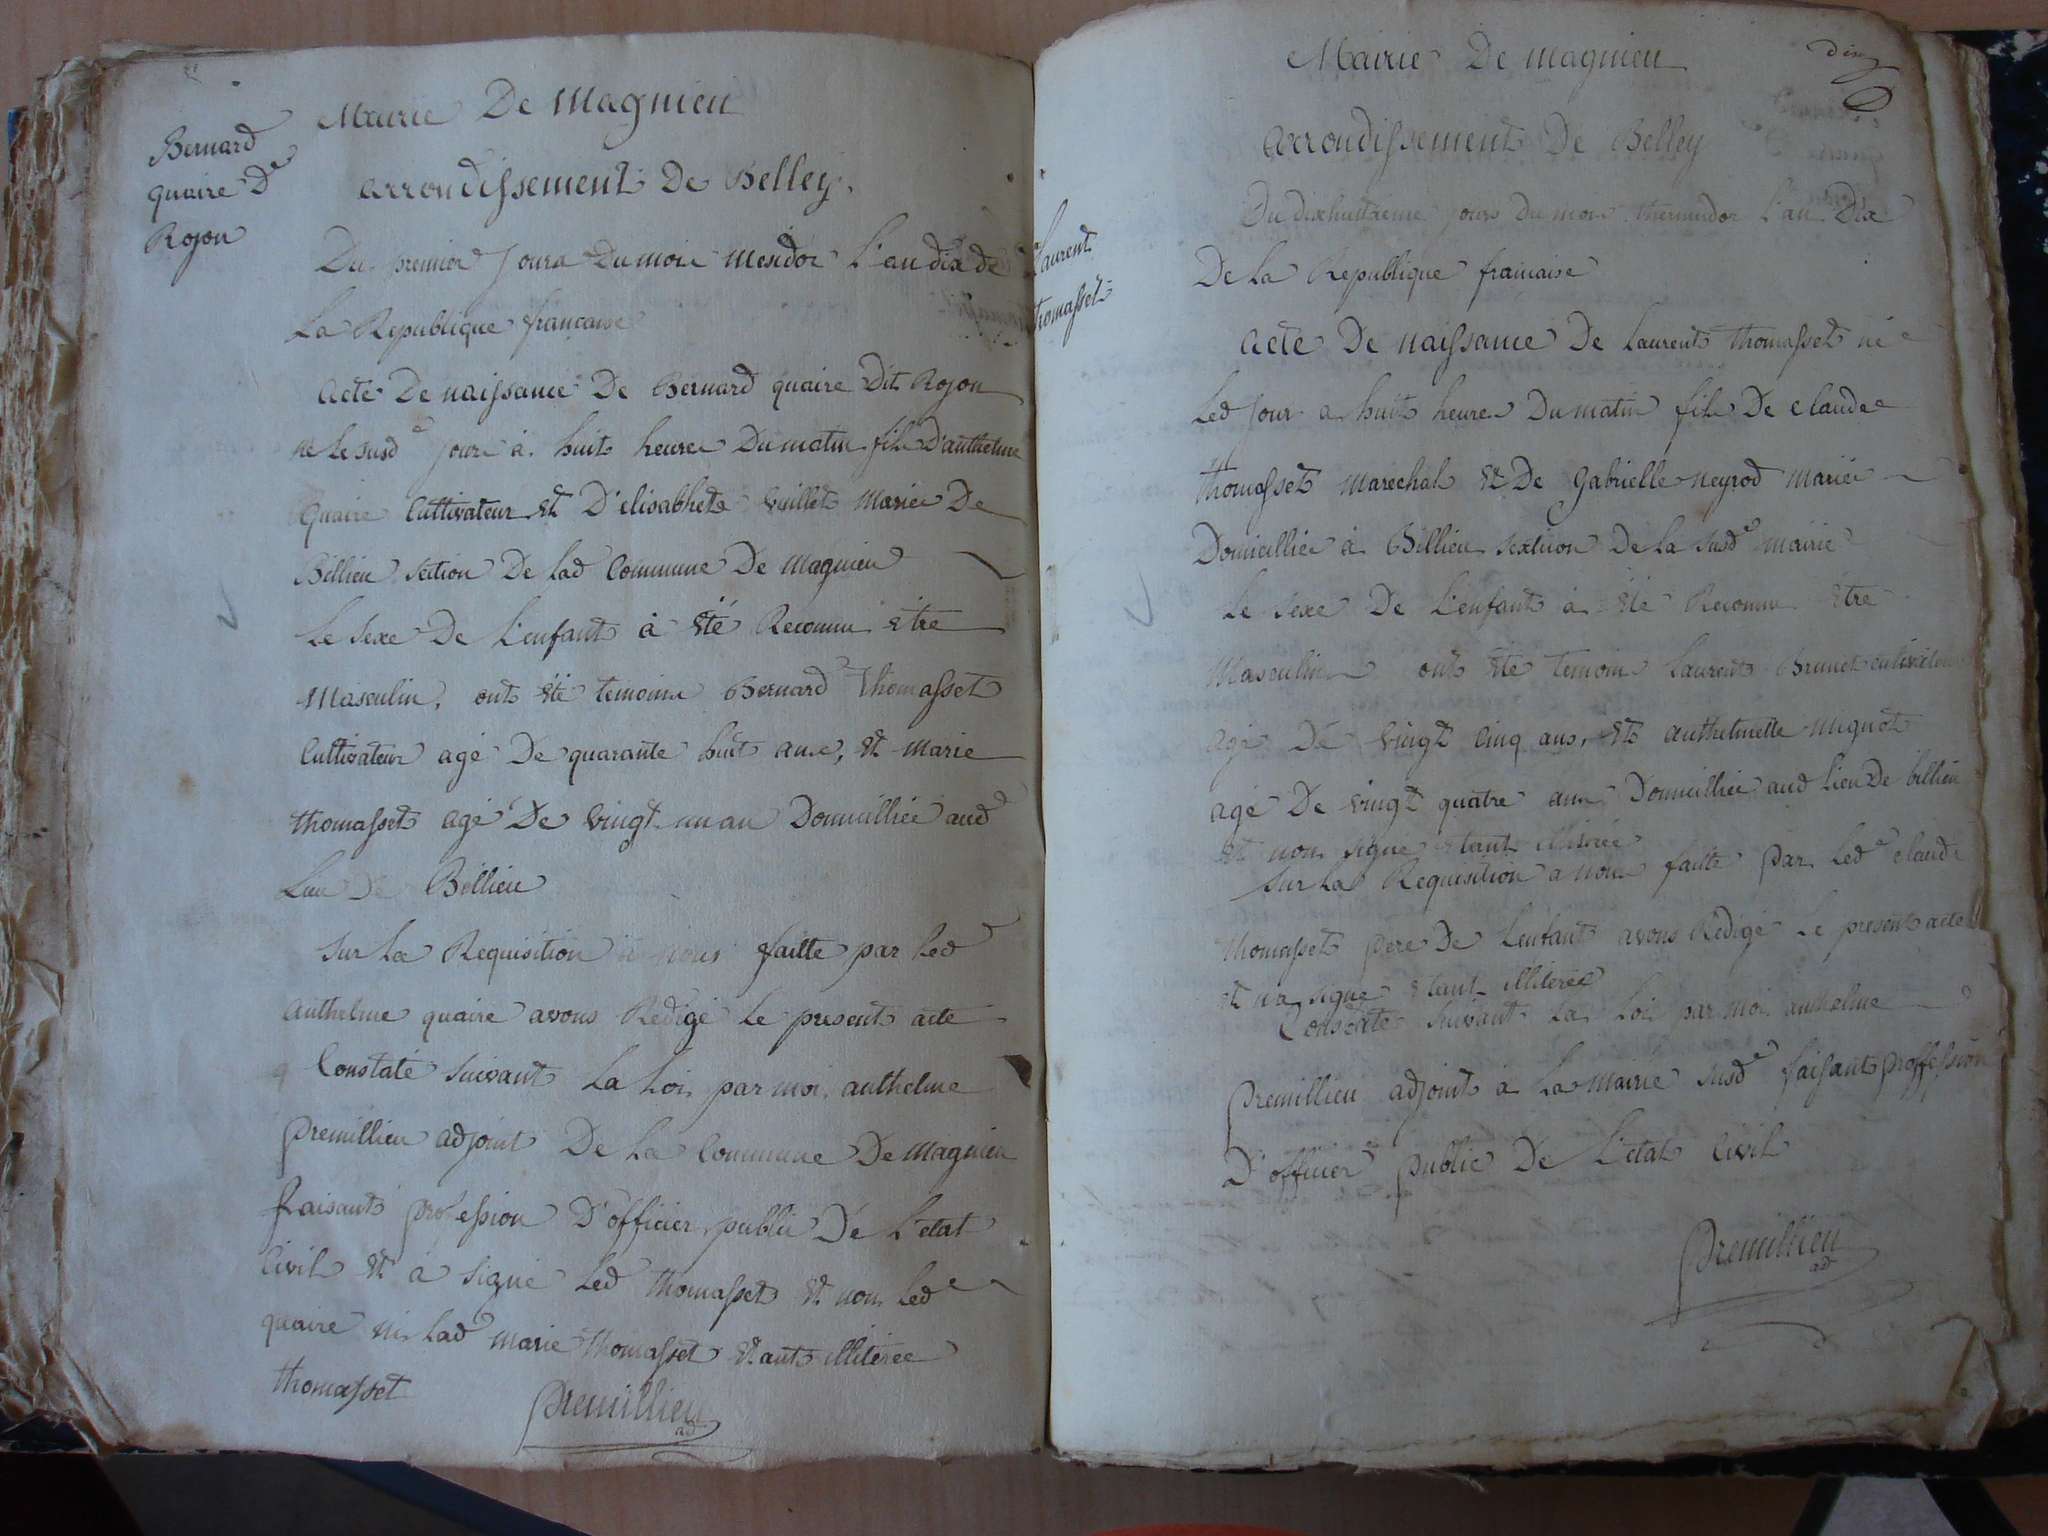 Bernard
quaire De
Rojon
Mairie De Magnieu
arrondissement De Belley.
Du premier Jours Du mois mesidor L'an dix de
La Republique francaise
acte De naissance De Bernard quaire Dit Rojon
né le susd e jour à huit heures Du matin fils D'anthelme
quaire Cultivateur Et D'elisabhete vuillet Mariés De
Billieu section De lad Commune De Magnieu
Le sexe De L'enfant à été Reconnu être
Masculin, ont été temoins Bernard Thomasset
Cultivateur agé De quarante huit ans, Et Marie
thomasset agé De vingt un an Domicilliés aud
Lieu De Billieu
sur La Requisition à nous faitte par Led
anthelme quaire avons Redigé Le present acte
Constaté suivant La Loi, par moi, anthelme
premillieu adjoint De La Commune De Magnieu
faisant profession D'officier public De L'etat
Civil Et à signé Led thomasset Et non Led
quaire ni Lad marie thomasset Etant illiterée
thomasset
Premillieu
ad
Laurent
thomasset
Mairie De magnieu
arrondissement De Belley
Du dixhuitieme jours du mois thermidor L'an Dix
De La Republique francaise
acte De naissance De Laurent thomasset né
Led Jour a huit heures Du matin fils De claude
thomasset marechal Et De gabrielle neyrod mariés
Domicilliés à Billieu sextion De la susd e mairie
Le sexe De L'enfant à été Reconnu Etre
Masculin ont été temoins Laurent Brunet cultivateur
agé De vingt cinq ans, Et anthelmette mignot
agé De vingt quatre ans Domicilliés aud lieu De billieu
Et non signé Etant illitirée
sur La Requisition a nous faitte par Led e claude
thomasset pere De L'enfant avons Redigé Le present acte
Et n'a signé Etant illiterée
Constaté suivant La Loi par moi anthelme
premillieu adjoint à La Mairie susd e faisant proffession
D'officier public De L'etat Civil
Premillieu
ad